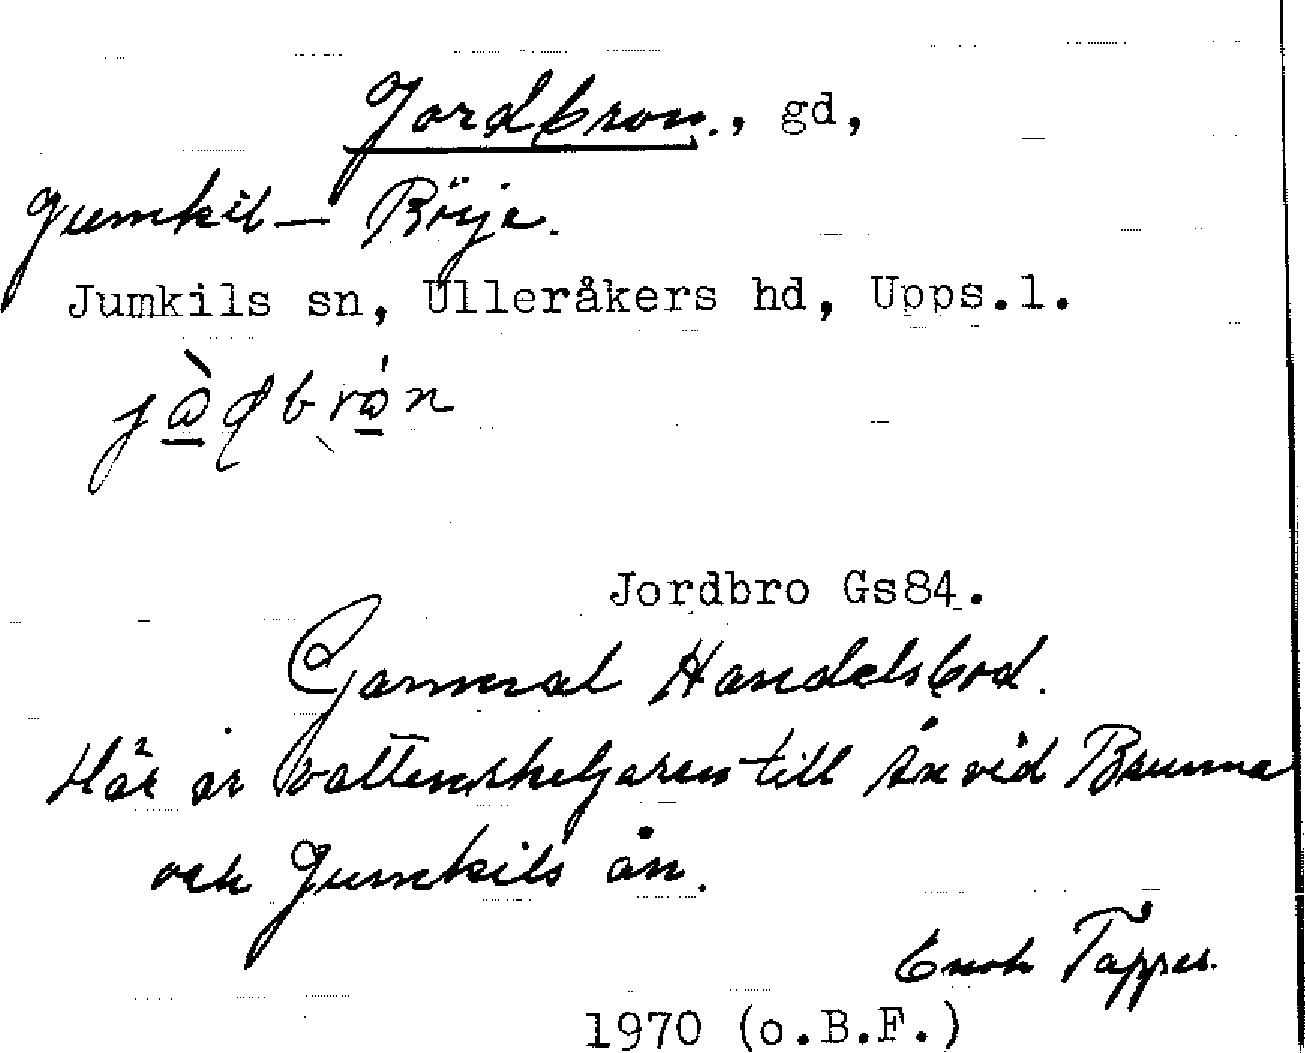 Jordbron., gd,
Jumkil – Börje.
Jumkils sn, Ulleråkers hd, Upps.l.
Jordbro Gs84.
Gammal Handelsbod.
Här är vattenskeljaren till Ån vid Brunna
och Jumkils ån.
Enok Tapper.
1970 (o.B.F.)